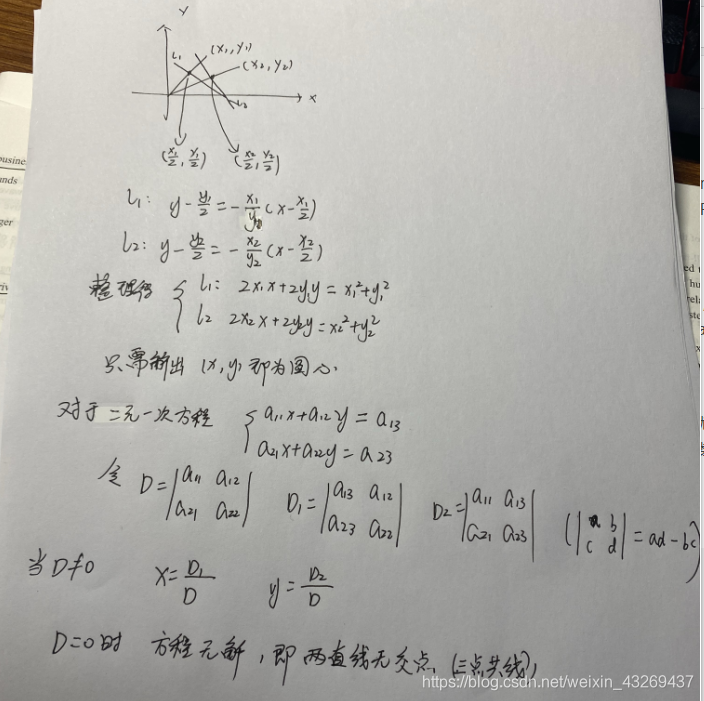 Y
L₁ (x₁, y₁)
(x₂, y₂)
x
L₂
(x₁/2, y₁/2) (x₂/2, y₂/2)
L₁: y - y₁/2 = - x₁/y₁ (x - x₁/2)
L₂: y - y₂/2 = - x₂/y₂ (x - x₂/2)
整理得 { L₁: 2x₁x + 2y₁y = x₁² + y₁²
L₂ 2x₂x + 2y₂y = x₂² + y₂²
只需解出 (x, y) 即为圆心.
对于二元一次方程 { a₁₁x + a₁₂y = a₁₃
a₂₁x + a₂₂y = a₂₃
令 D = |a₁₁ a₁₂; a₂₁ a₂₂| D₁ = |a₁₃ a₁₂; a₂₃ a₂₂| D₂ = |a₁₁ a₁₃; a₂₁ a₂₃| (|a b; c d| = ad - bc)
当 D≠0 x = D₁/D y = D₂/D
D=0时 方程无解, 即两直线无交点. (三点共线),
https://blog.csdn.net/weixin_43269437
busine
nds
ger